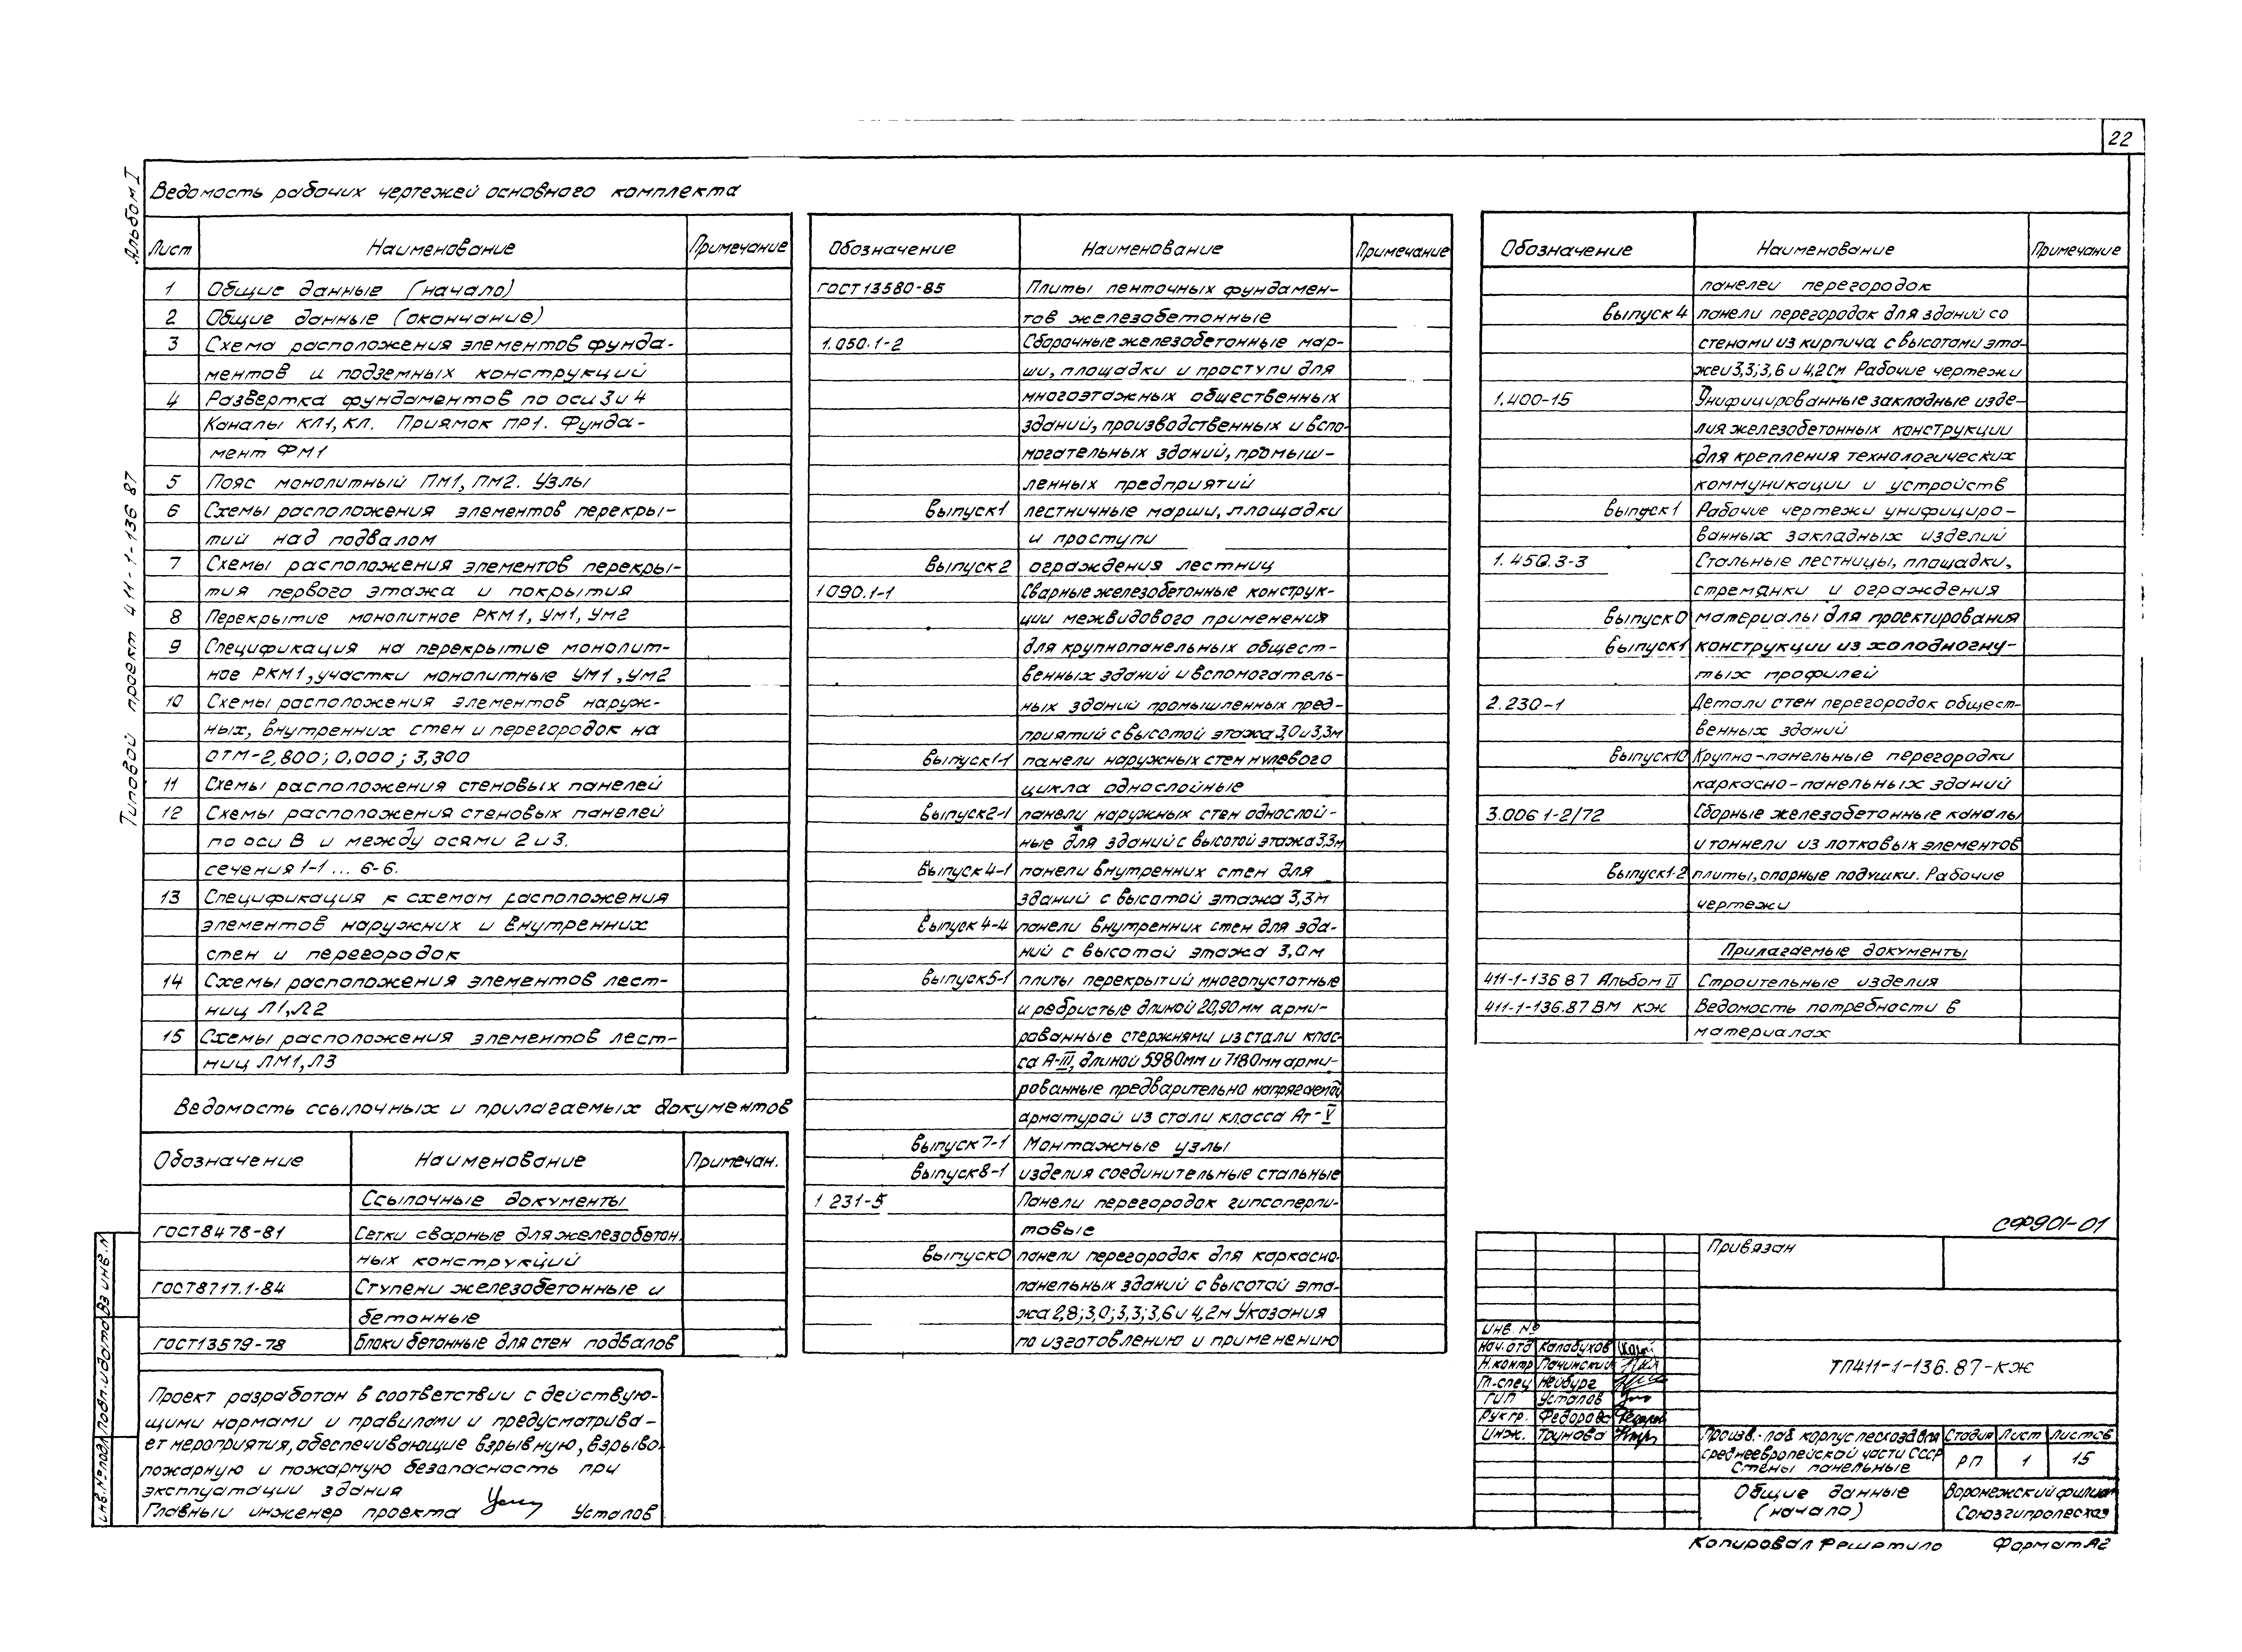 22
Альбом I
Типовой проект 411-1-136 87
Ведомость рабочих чертежей основного комплекта
Лист Наименование Примечание
1 Общие данные (начало)
2 Общие данные (окончание)
3 Схема расположения элементов фунда-
ментов и подземных конструкций
4 Развертка фундаментов по оси 3 и 4
Каналы КЛ1, КЛ. Приямок ПР1. Фунда-
мент ФМ1
5 Пояс монолитный ПМ1, ПМ2. Узлы
6 Схемы расположения элементов перекры-
тий над подвалом
7 Схемы расположения элементов перекры-
тия первого этажа и покрытия
8 Перекрытие монолитное РКМ1, УМ1, УМ2
9 Спецификация на перекрытие монолит-
ное РКМ1, участки монолитные УМ1, УМ2
10 Схемы расположения элементов наруж-
ных, внутренних стен и перегородок на
ОТМ-2,800; 0,000; 3,300
11 Схемы расположения стеновых панелей
12 Схемы расположения стеновых панелей
по оси В и между осями 2 и 3.
сечения 1-1 ... 6-6.
13 Спецификация к схемам расположения
элементов наружних и внутренних
стен и перегородок
14 Схемы расположения элементов лест-
ниц Л1, Л2
15 Схемы расположения элементов лест-
ниц ЛМ1, Л3
Ведомость ссылочных и прилагаемых документов
Обозначение Наименование Примечан.
Ссылочные документы
ГОСТ 8478-81 Сетки сварные для железобетон.
ных конструкций
ГОСТ 8717.1-84 Ступени железобетонные и
бетонные
ГОСТ 13579-78 Блоки бетонные для стен подвалов
Проект разработан в соответствии с действую-
щими нормами и правилами и предусматрива-
ет мероприятия, обеспечивающие взрывную, взрыво-
пожарную и пожарную безопасность при
эксплуатации здания
Главный инженер проекта Усталов
Обозначение Наименование Примечание
ГОСТ 13580-85 Плиты ленточных фундамен-
тов железобетонные
1.050.1-2 Сборочные железобетонные мар-
ши, площадки и проступи для
многоэтажных общественных
зданий, производственных и вспо-
могательных зданий, промыш-
ленных предприятий
Выпуск 1 лестничные марши, площадки
и проступи
Выпуск 2 ограждения лестниц
1 090.1-1 Сварные железобетонные конструк-
ции межвидового применения
для крупнопанельных общест-
венных зданий и вспомогатель-
ных зданий промышленных пред-
приятий с высотой этажа 3,0 и 3,3м
Выпуск 1-1 панели наружных стен нулевого
цикла однослойные
Выпуск 2-1 панели наружных стен однослой-
ные для зданий с высотой этажа 3,3м
Выпуск 4-1 панели внутренних стен для
зданий с высотой этажа 3,3м
Выпуск 4-4 панели внутренних стен для зда-
ний с высотой этажа 3,0м
Выпуск 5-1 плиты перекрытий многопустотные
и ребристые длиной 20,90мм арми-
рованные стержнями из стали клас-
са А-III, длиной 5980мм и 7180мм арми-
рованные предварительно напрягаемой
арматурой из стали класса Ат-V
Выпуск 7-1 Монтажные узлы
Выпуск 8-1 изделия соединительные стальные
1 231-5 Панели перегородок гипсоперли-
товые
Выпуск 0 панели перегородок для каркасно-
панельных зданий с высотой эта-
жа 2,8; 3,0; 3,3; 3,6 и 4,2м Указания
по изготовлению и применению
Обозначение Наименование Примечание
панелеи перегородок
Выпуск 4 панели перегородок для зданий со
стенами из кирпича с высотами эта-
жеи 3,3; 3,6 и 4,2см Рабочие чертежи
1.400-15 Унифицированные закладные изде-
лия железобетонных конструкции
для крепления технологических
коммуникации и устройств
Выпуск 1 Рабочие чертежи унифициро-
ванных закладных изделий
1.450.3-3 Стальные лестницы, площадки,
стремянки и ограждения
Выпуск 0 материалы для проектирования
Выпуск 1 конструкции из холодногну-
тых профилей
2.230-1 Детали стен перегородок общест-
венных зданий
Выпуск 10 Крупно-панельные перегородки
каркасно-панельных зданий
3.006 1-2/72 Сборные железобетонные каналы
и тоннели из лотковых элементов
Выпуск 1-2 плиты, опорные подушки. Рабочие
чертежи
Прилагаемые документы
411-1-136 87 Альбом II Строительные изделия
411-1-136.87 ВМ КЖ Ведомость потребности в
материалах
СФ901-01
Привязан
инв. №
Нач. отд Калабухов
Н. контр Пачинский
Гл-спец Нейбург
ГИП Усталов
Рук гр. Федорова
Инж. Трунова
ТП411-1-136.87-КЖ
Произв.-лаб корпус лесхоза для
среднеевропейской части СССР
Стены панельные
Стадия Лист Листов
РП 1 15
Общие данные
(начало)
Воронежский филиал
Союзгипролесхоз
Копировал Решетило Формат А2
инв. № подл Подп. и дата Вз инв. №